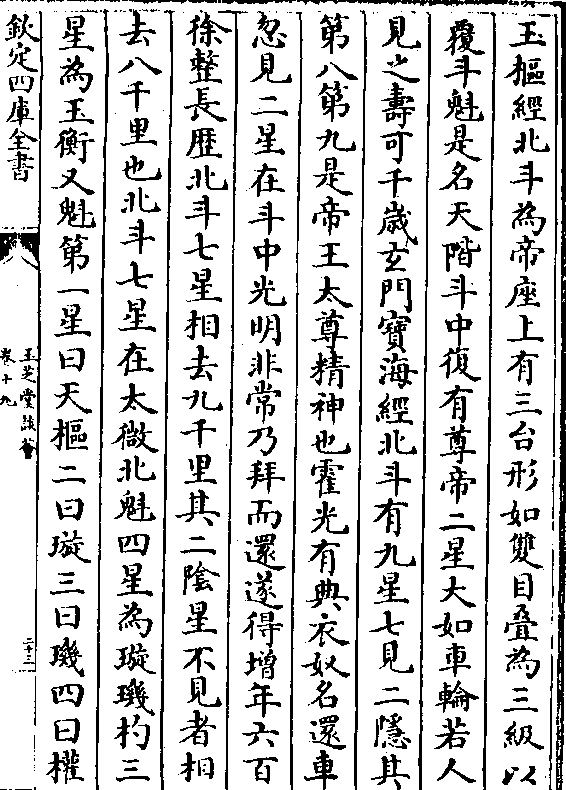 玉樞經北斗為帝座上有三台形如雙目疊為三級以
覆斗魁是名天階斗中復有尊帝二星大如車輪若人
見之壽可千歲玄門寶海經北斗有九星七見二隱其
第八第九是帝王太尊精神也霍光有典衣奴名還車
忽見二星在斗中光明非常乃拜而還遂得增年六百
徐整長歷北斗七星相去九千里其二陰星不見者相
去八千里也北斗七星在太微北魁四星為璇璣杓三
星為玉衡又魁第一星曰天樞二曰璇三曰璣四曰權
欽定四庫全書
玉芝堂談薈
卷十九
二十三